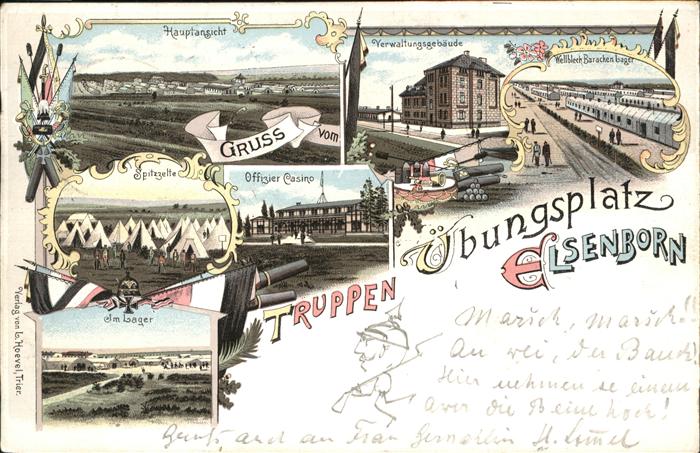 Hauptansicht
Verwaltungsgebäude
Wellblech Barachen Lager
GRUSS vom
Spitzzelte
Offizier Casino
Übungsplatz
ELSENBORN
TRUPPEN
Im Lager
Verlag von L. Hoevel, Trier.
Marsch, Marsch!!
An wei, der Bauch!
Hier nehmen se einem
awer die Beine hoch!
Gruß, auch an Frau Gemahlin H.